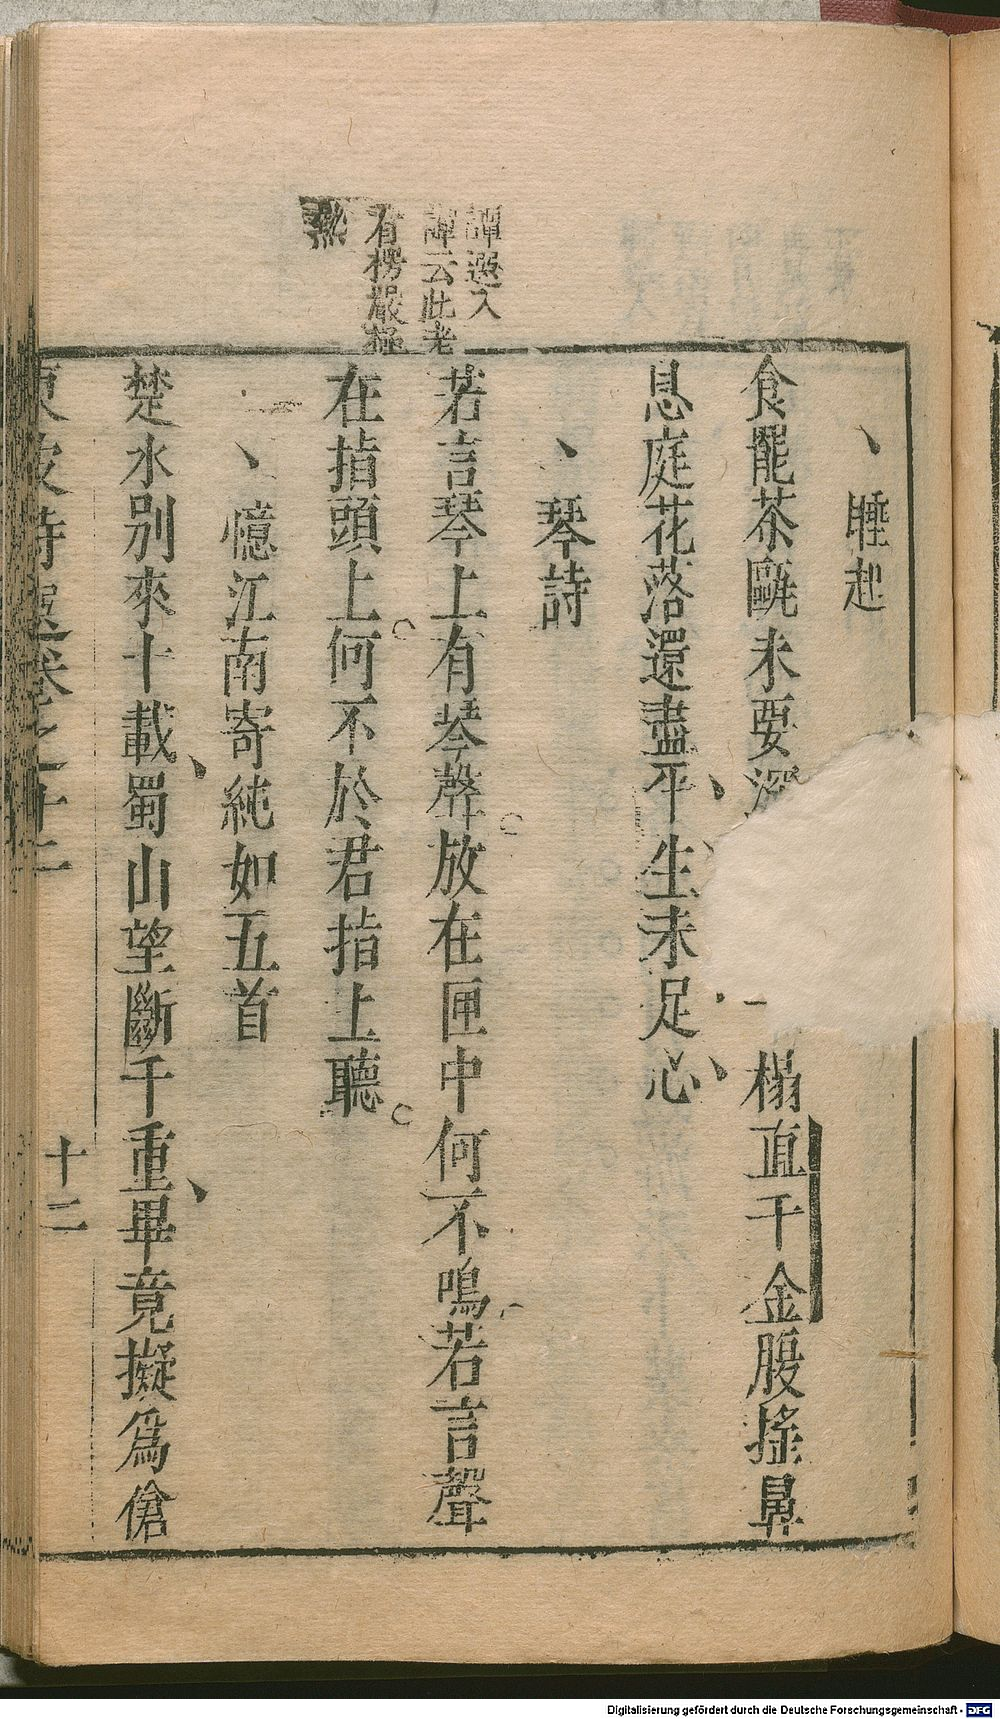 、睡起
食罷茶甌未要深 一榻直千金腹搖鼻
息庭花落還盡平生未足心
、琴詩
譚選入
譚云此老
有楞嚴極
若言琴上有琴聲放在匣中何不鳴若言聲
在指頭上何不於君指上聽
、憶江南寄純如五首
楚水別來十載蜀山望斷千重畢竟擬爲傖
東坡詩選卷之十二 十二
Digitalisierung gefördert durch die Deutsche Forschungsgemeinschaft - DFG